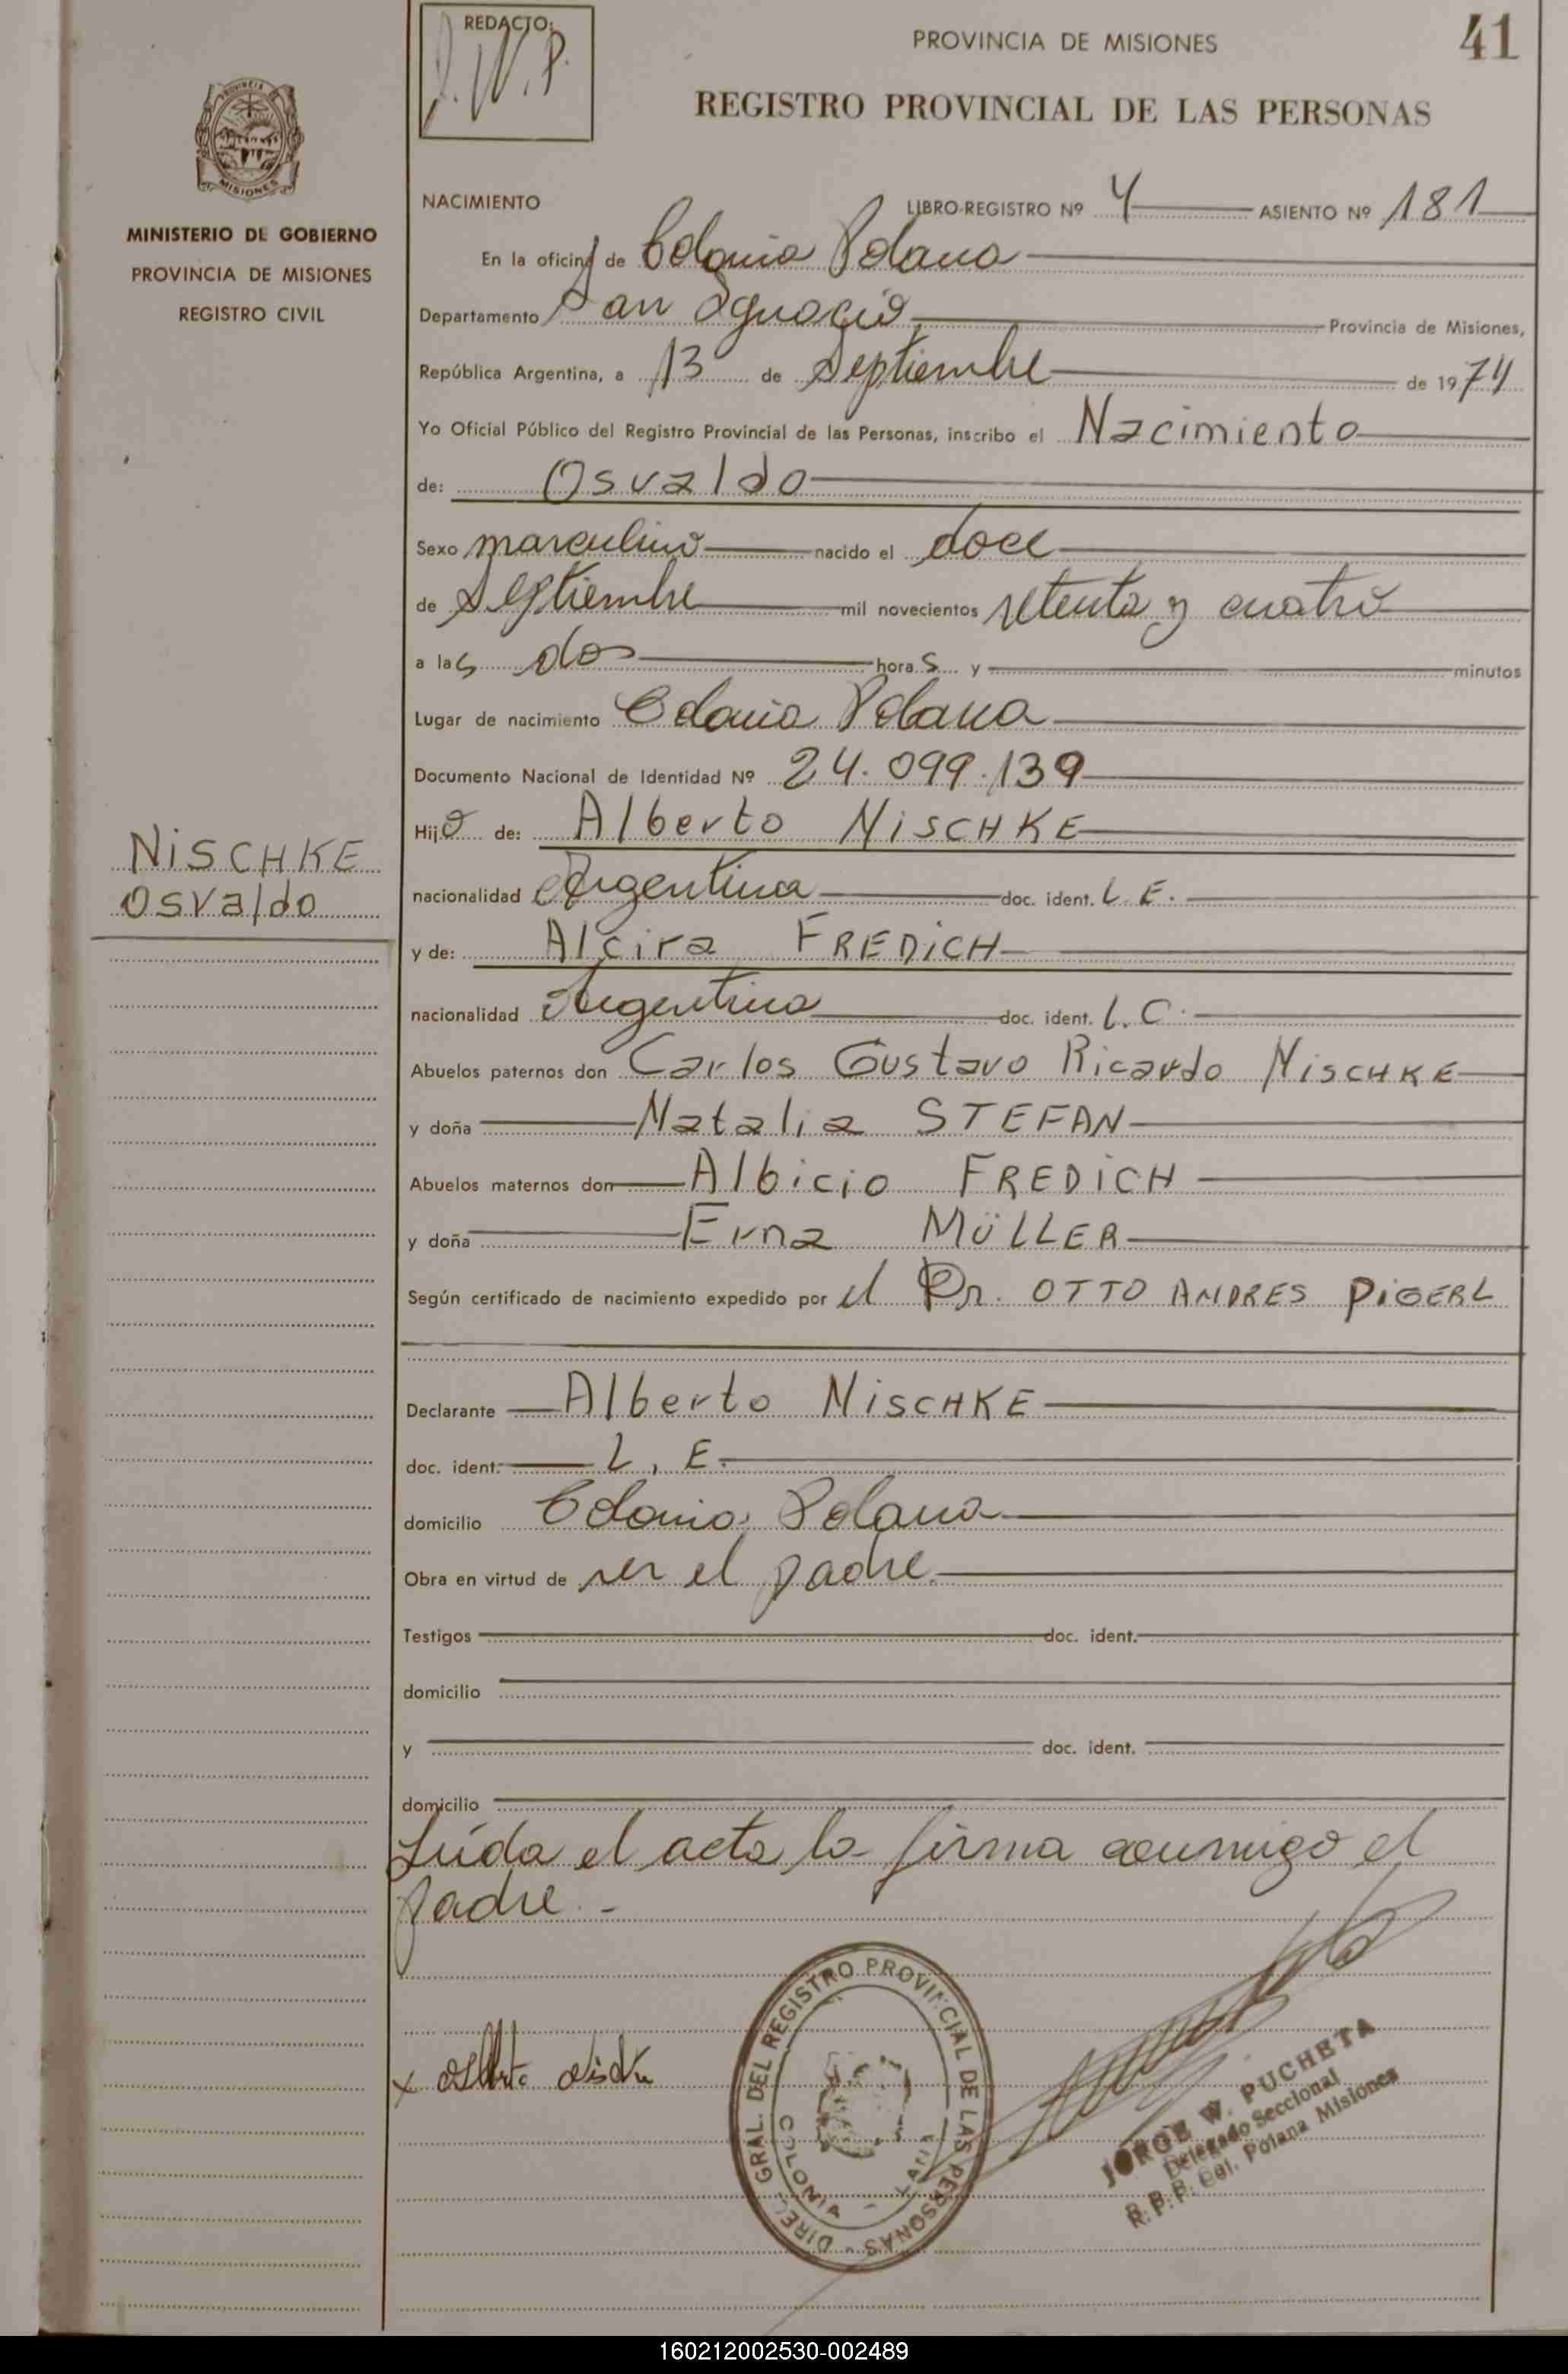 REDACTO:
J.W.P.
PROVINCIA DE MISIONES
41
REGISTRO PROVINCIAL DE LAS PERSONAS
PROVINCIA MISIONES
MINISTERIO DE GOBIERNO
PROVINCIA DE MISIONES
REGISTRO CIVIL
NACIMIENTO LIBRO-REGISTRO Nº 4 ASIENTO Nº 181
En la oficina de Colonia Polana
Departamento San Ignacio Provincia de Misiones,
República Argentina, a 13 de Septiembre de 1974
Yo Oficial Público del Registro Provincial de las Personas, inscribo el Nacimiento
de: Osvaldo
Sexo masculino nacido el doce
de Septiembre mil novecientos setenta y cuatro
a las dos horas y minutos
Lugar de nacimiento Colonia Polana
Documento Nacional de Identidad Nº 24.099.139
Hijo de: Alberto NISCHKE
NISCHKE
Osvaldo
nacionalidad Argentina doc. ident. L.E.
y de: Alcira FREDICH
nacionalidad Argentina doc. ident. L.C.
Abuelos paternos don Carlos Gustavo Ricardo NISCHKE
y doña Natalia STEFAN
Abuelos maternos don Albicio FREDICH
y doña Erna MÜLLER
Según certificado de nacimiento expedido por el Dr. OTTO ANDRES PIGERL
Declarante Alberto NISCHKE
doc. ident. L.E.
domicilio Colonia Polana
Obra en virtud de ser el padre.
Testigos doc. ident.
domicilio
y doc. ident.
domicilio
Leída el acta la firma conmigo el
padre.-
x Alberto
DIREC. GRAL. DEL REGISTRO PROVINCIAL DE LAS PERSONAS
COLONIA - LANA
JORGE W. PUCHETA
Delegado Seccional
R.P.P. Col. Polana Misiones
160212002530-002489